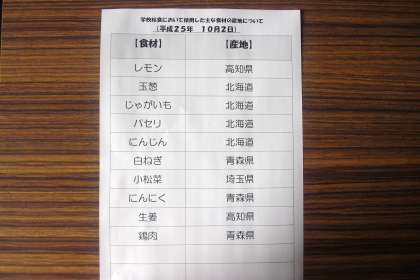 学校給食において使用した主な食材の産地について
(平成25年 10月2日)
【食材】 【産地】
レモン 高知県
玉葱 北海道
じゃがいも 北海道
パセリ 北海道
にんじん 北海道
白ねぎ 青森県
小松菜 埼玉県
にんにく 青森県
生姜 高知県
鶏肉 青森県